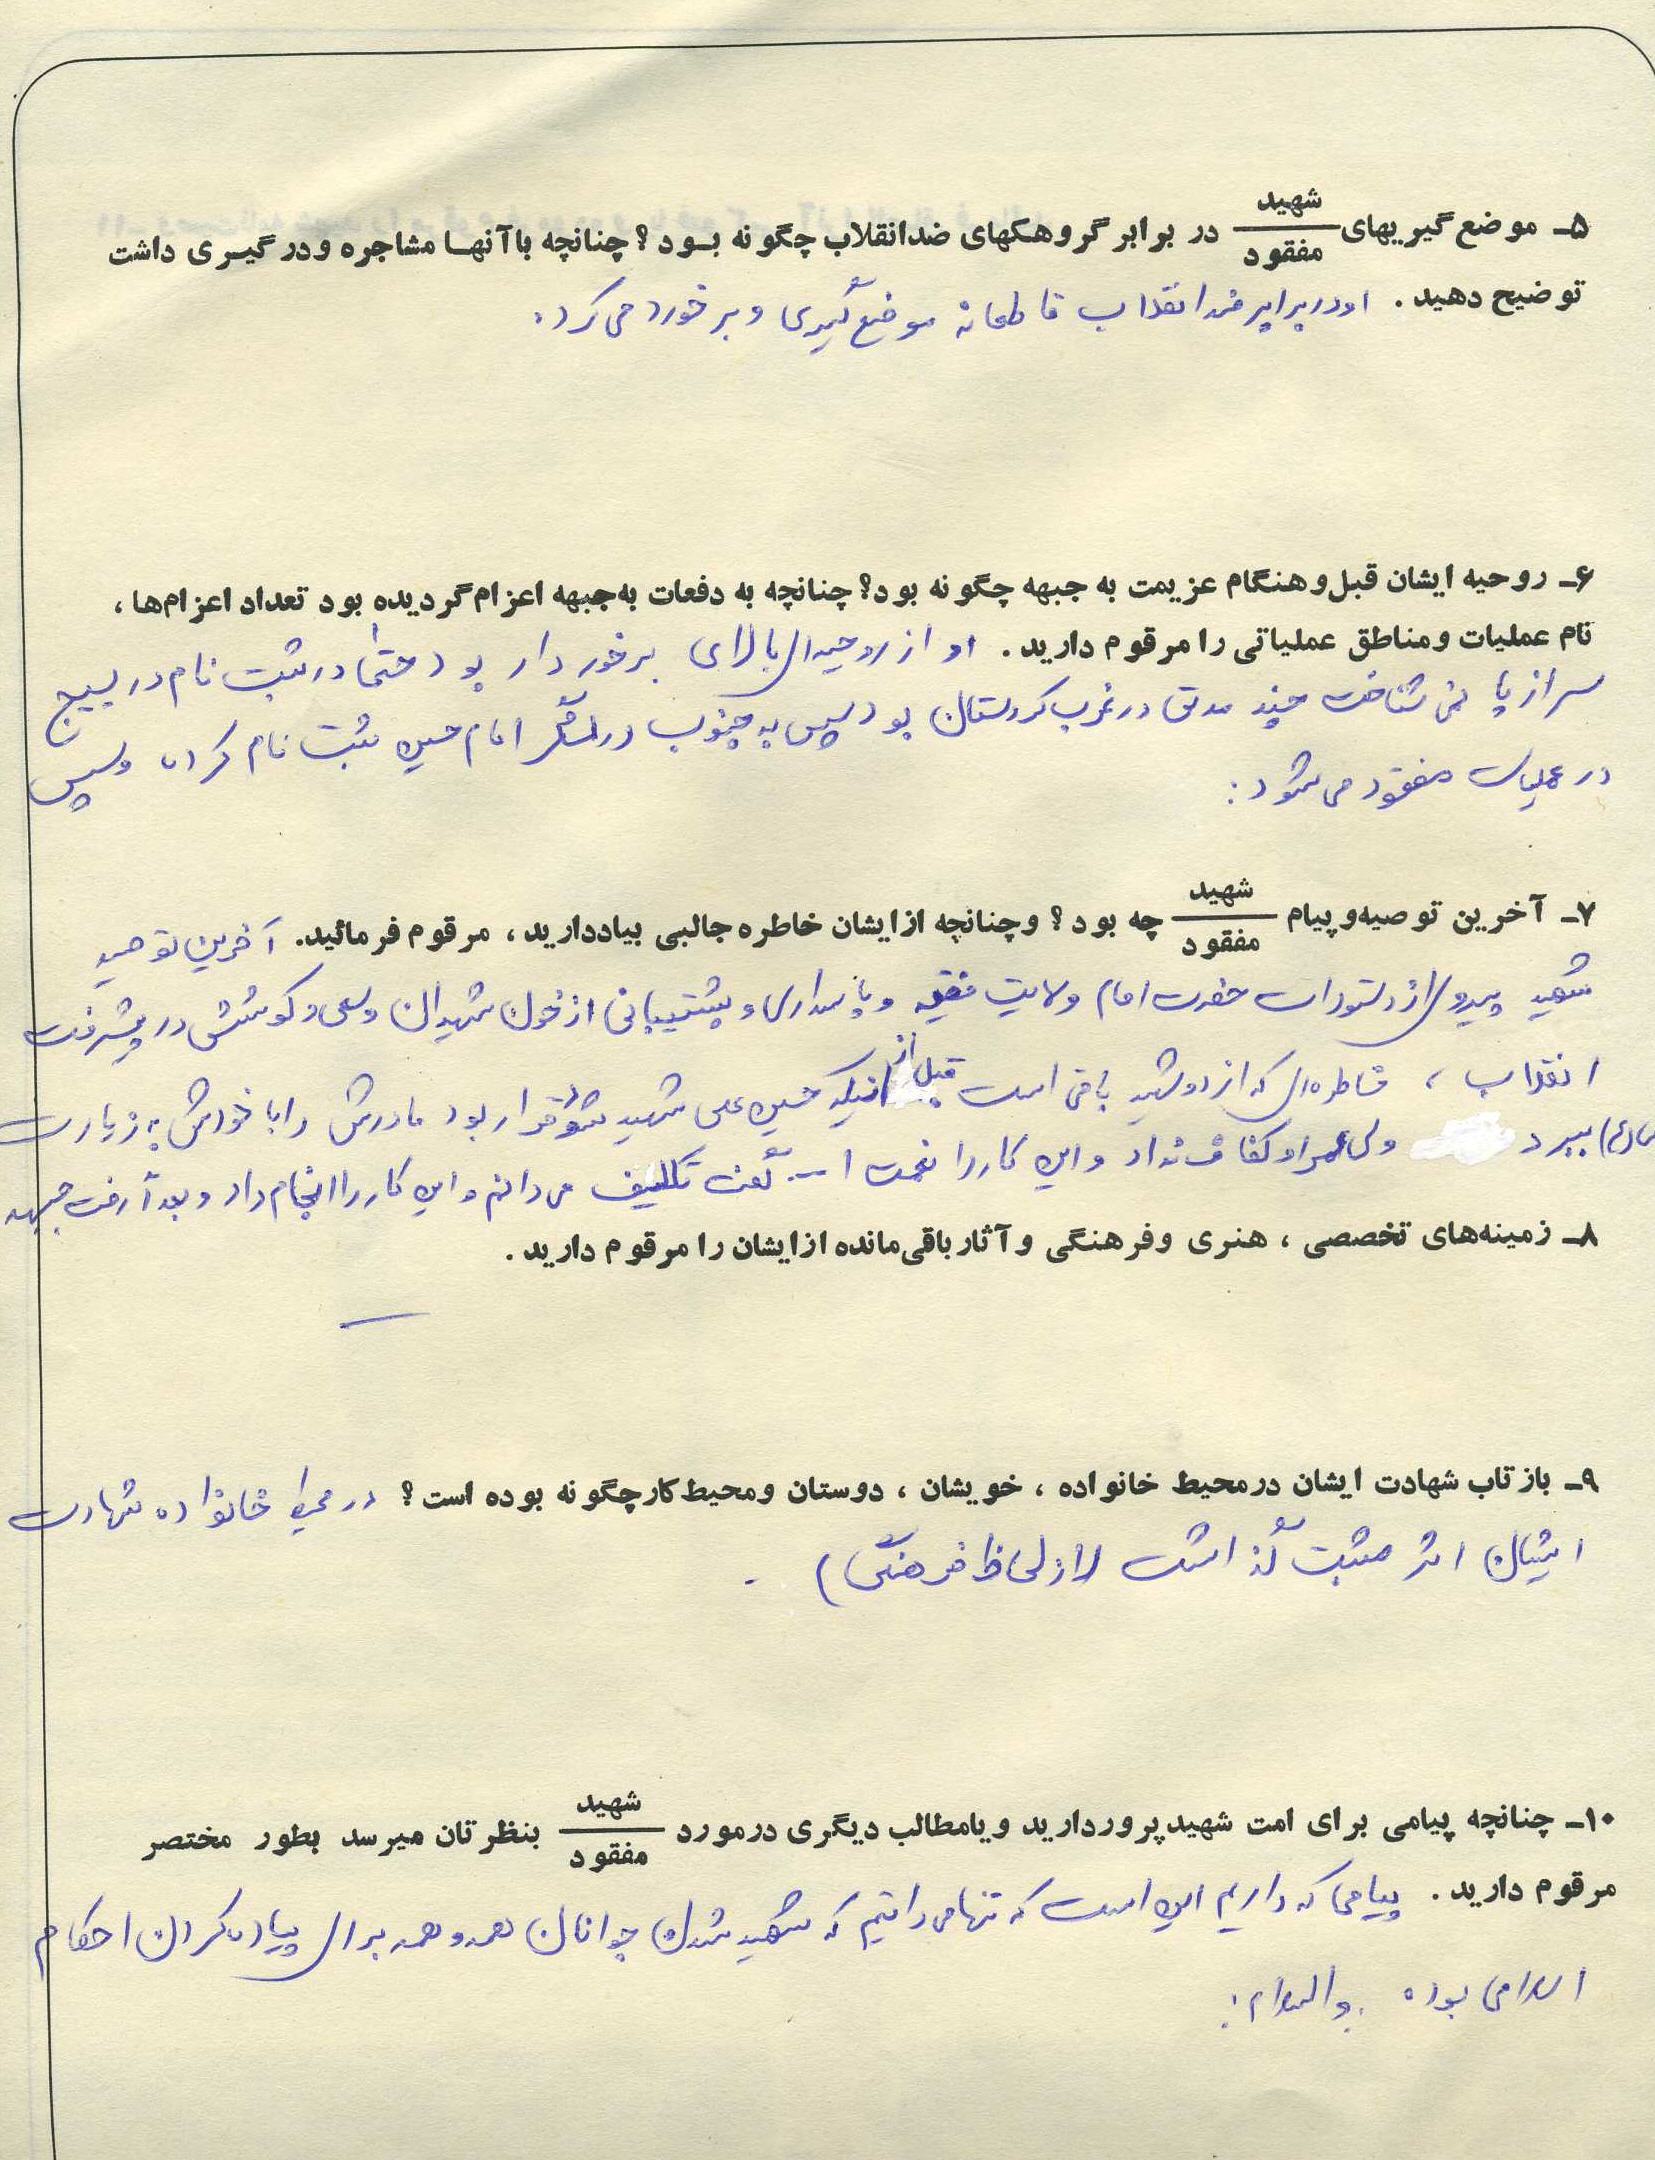 ۵ـ موضع‌گیریهای شهید/مفقود در برابر گروهکهای ضدانقلاب چگونه بود؟ چنانچه با آنها مشاجره و درگیری داشت
توضیح دهید. او در برابر ضد انقلاب قاطعانه موضع گیری و برخورد می کرد.
۶ـ روحیه ایشان قبل و هنگام عزیمت به جبهه چگونه بود؟ چنانچه به دفعات به جبهه اعزام گردیده بود تعداد اعزام‌ها،
نام عملیات و مناطق عملیاتی را مرقوم دارید. او از روحیه ای بالای برخوردار بود حتماً در ثبت نام در بسیج
سر از پا نمی شناخت چند مدتی در غرب کردستان بود سپس به جنوب در لشگر امام حسین ثبت نام کرده و سپس
در عملیات مفقود می شود:
۷ـ آخرین توصیه و پیام شهید/مفقود چه بود؟ و چنانچه از ایشان خاطره جالبی بیاد دارید، مرقوم فرمائید. آخرین توصیه
شهید پیروی از دستورات حضرت امام ولایت فقیه و پاسداری و پشتیبانی از خون شهیدان و سعی و کوشش در پیشرفت
انقلاب، خاطره ای که از شهید باقی است قبل از اینکه حسین علی شهید شود قرار بود مادرش را با خودش به زیارت
ببرد ولی عمر او کفاف نداد و این کار را گفت تکلیف می دانم و این کار را انجام داد و بعد رفت جبهه
۸ـ زمینه‌های تخصصی، هنری و فرهنگی و آثار باقی‌مانده از ایشان را مرقوم دارید.
۹ـ بازتاب شهادت ایشان در محیط خانواده، خویشان، دوستان و محیط کار چگونه بوده است؟ در محیط خانواده شهادت
ایشان اثر مثبت گذاشت (از لحاظ فرهنگی).
۱۰ـ چنانچه پیامی برای امت شهیدپرور دارید و یا مطالب دیگری در مورد شهید/مفقود بنظرتان میرسد بطور مختصر
مرقوم دارید. پیامی که داریم این است که تنها می دانیم که شهید شدن جوانان همه و همه برای پیاده کردن احکام
اسلامی بوده. والسلام: